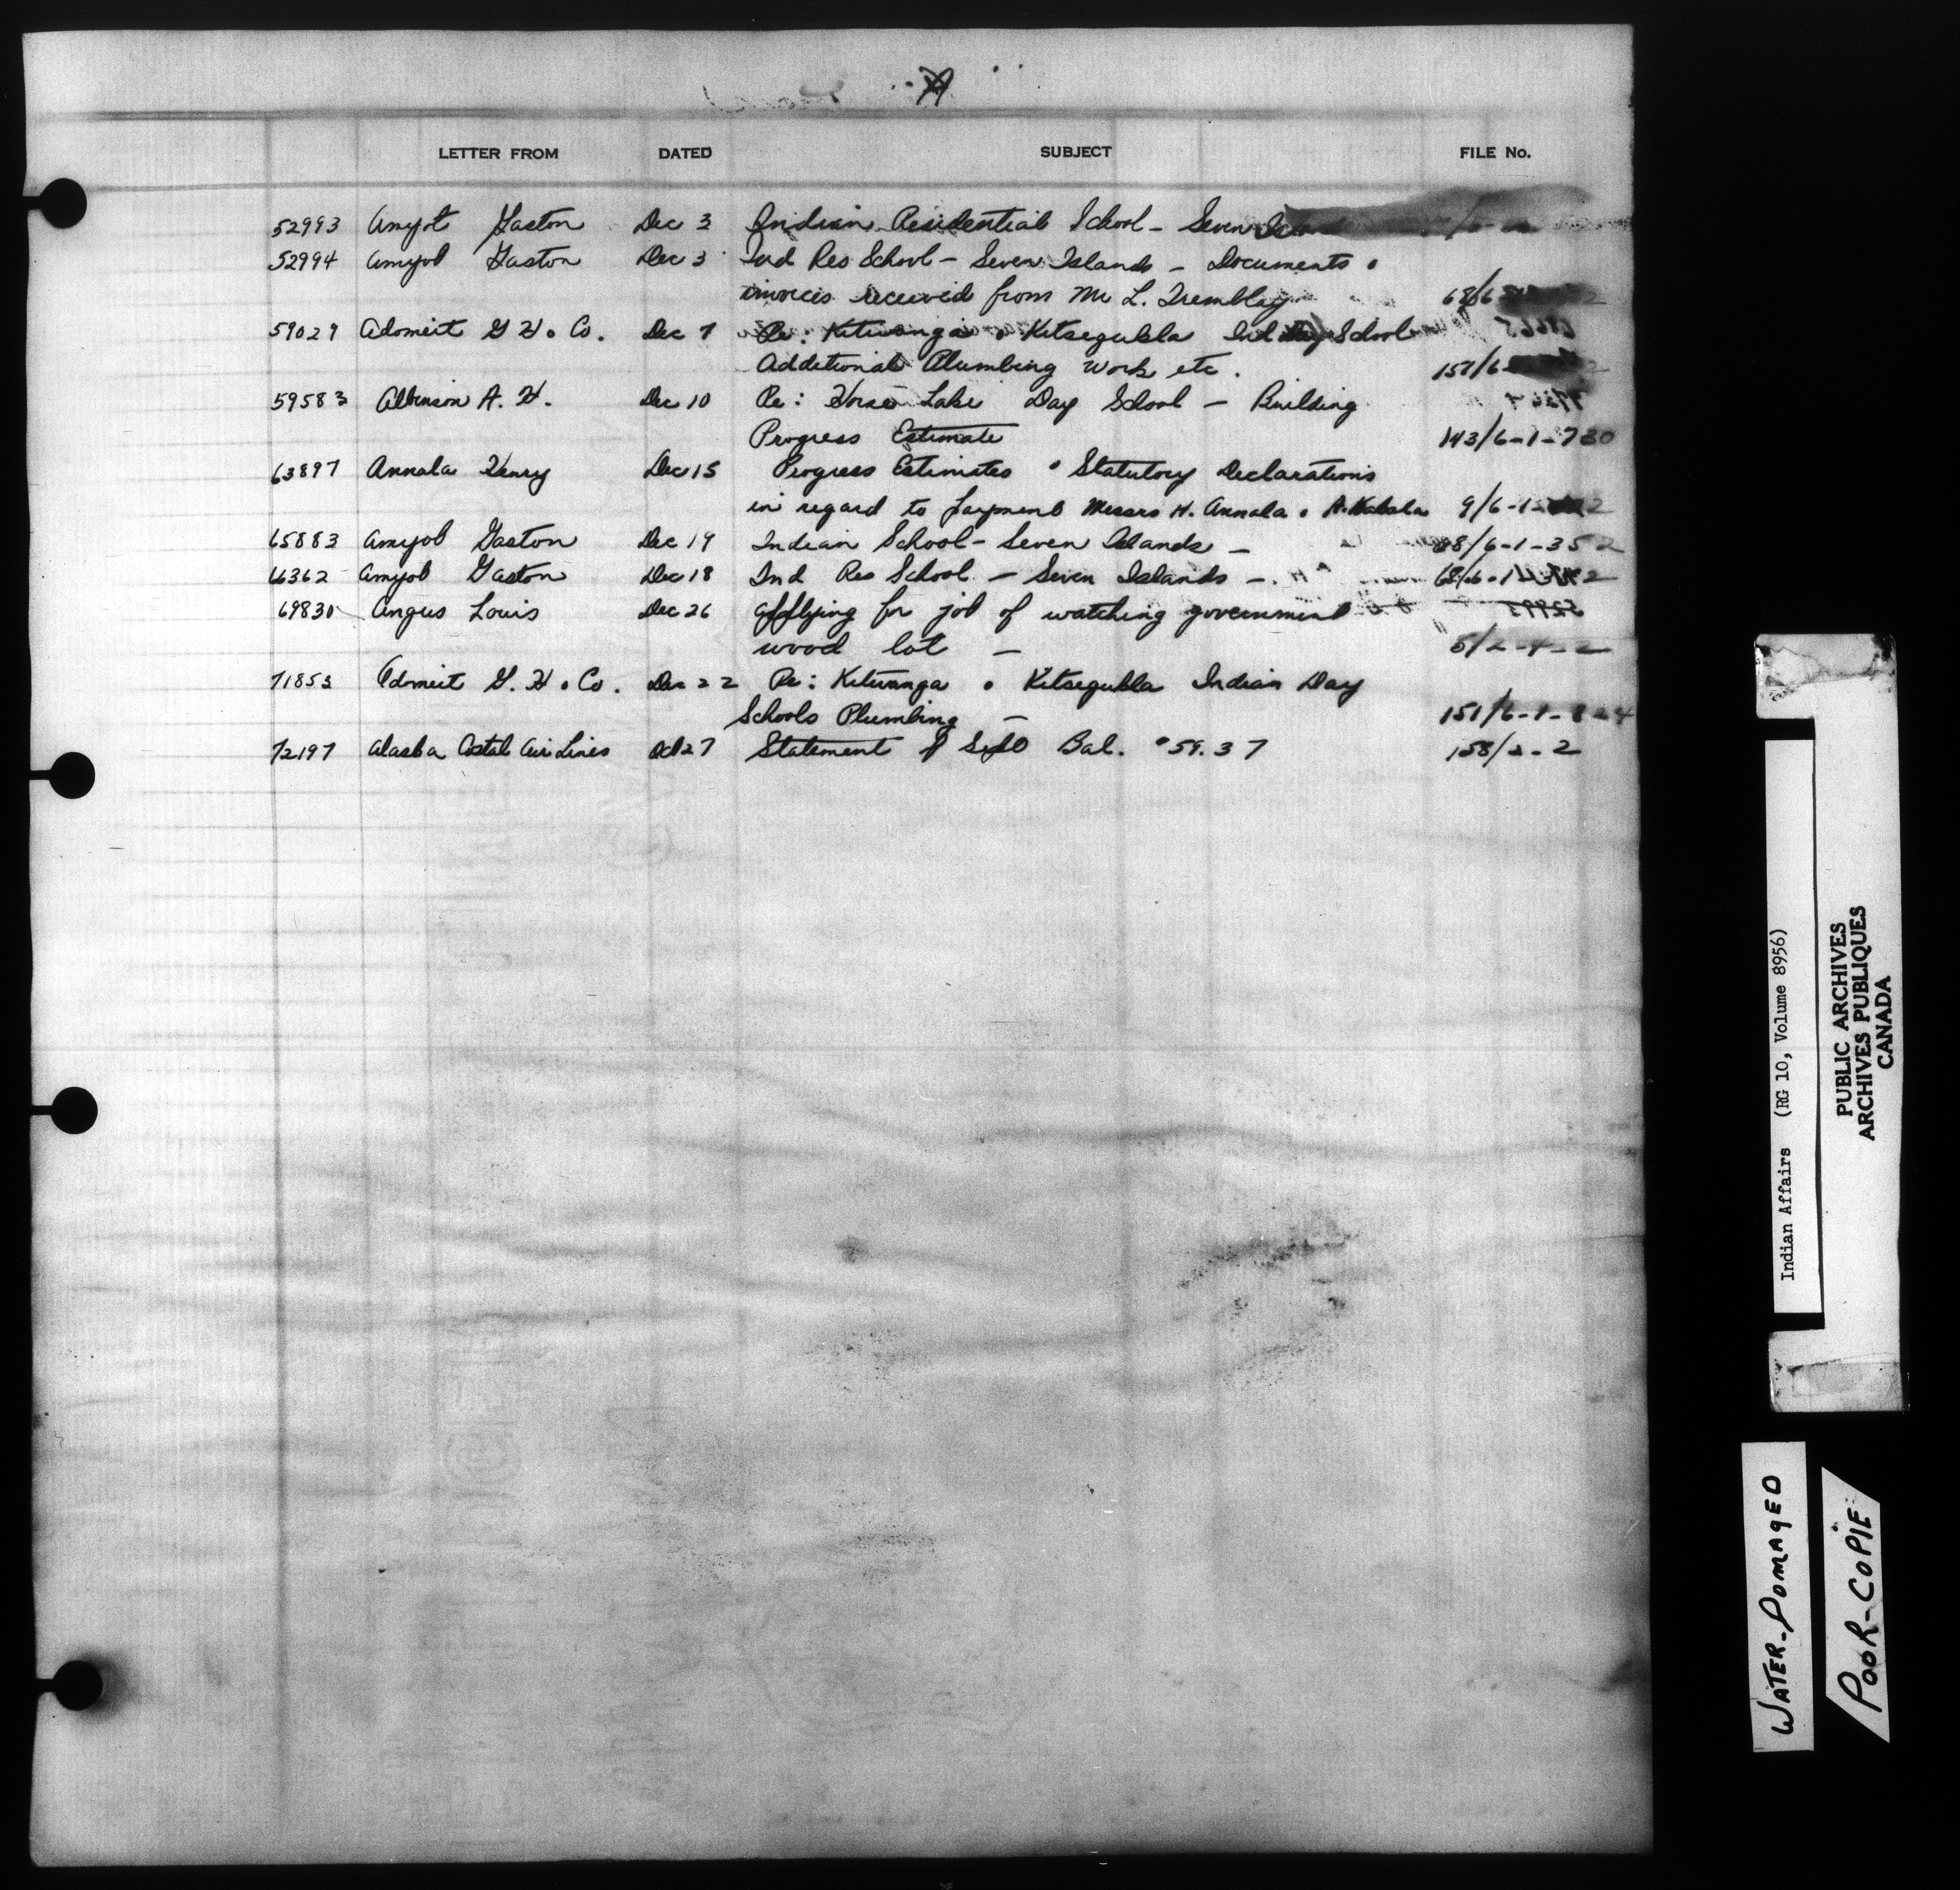 A
LETTER FROM DATED SUBJECT FILE No.
52993 Amyot Gaston Dec 3 Indian Residential School - Seven Islands
52994 Amyot Gaston Dec 3 Ind Res School - Seven Islands - Documents •
invoices received from Mr L. Tremblay 68/6
59029 Adomeit G H • Co. Dec 7 Re: Kitwanga • Kitsegukla Ind Day School
Additional Plumbing work etc. 151/6
59583 Albinson A. H. Dec 10 Re: Horse Lake Day School - Building
Progress Estimate 143/6-1-730
63897 Annala Henry Dec 15 Progress Estimates • Statutory Declarations
in regard to payment Messrs H. Annala • A. Kabala 9/6-1-
65883 Amyot Gaston Dec 19 Indian School - Seven Islands - 68/6-1-352
66362 Amyot Gaston Dec 18 Ind Res School - Seven Islands -
69830 Angus Louis Dec 26 applying for job of watching government
wood lot - 5/2-4-2
71853 Admeit G. H • Co. Dec 22 Re: Kitwanga • Kitsegukla Indian Day
Schools Plumbing - 151/6-1-
72197 Alaska Costal Air Lines Oct 27 Statement of Sept Bal. $59.37 158/2-2
Indian Affairs (RG 10, Volume 8956)
PUBLIC ARCHIVES
ARCHIVES PUBLIQUES
CANADA
WATER-DOMAGED
POOR-COPIE